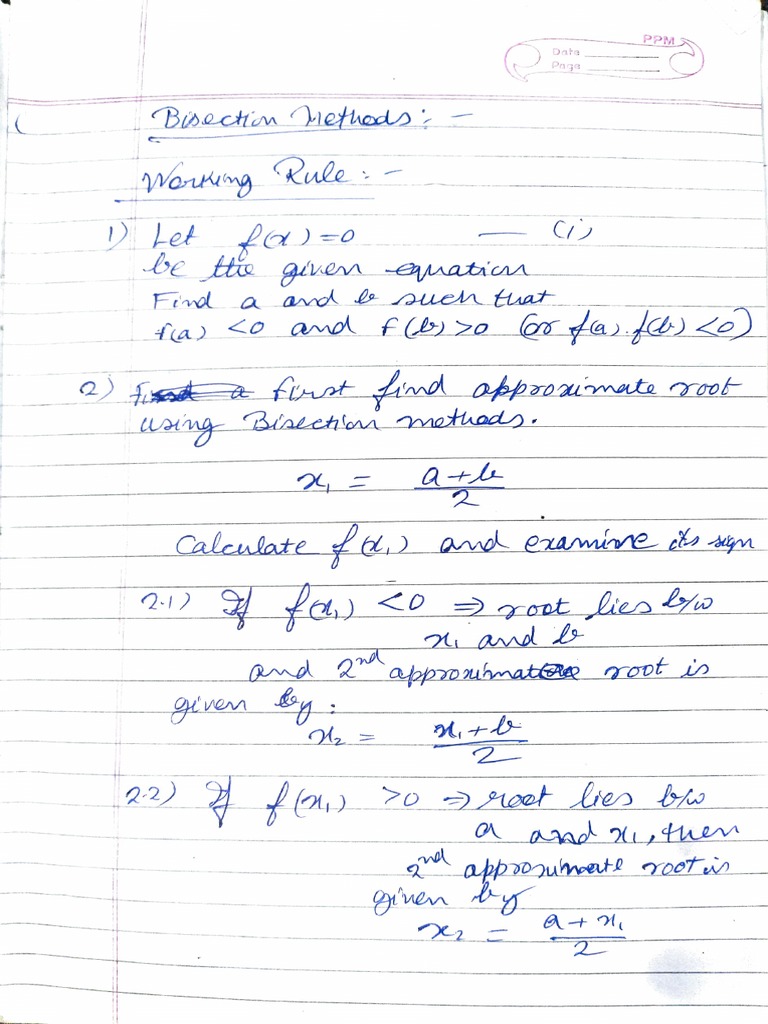 PPM
Date
Page
Bisection Methods: -
Working Rule: -
1) Let f(x) = 0 — (i)
be the given equation
Find a and b such that
f(a) < 0 and f(b) > 0 (or f(a). f(b) < 0)
2) first find approximate root
using Bisection methods.
x₁ = (a + b)/2
Calculate f(x₁) and examine its sign
2.1) If f(x₁) < 0 ⇒ root lies b/w
x₁ and b
and 2nd approximate root is
given by:
x₂ = (x₁ + b)/2
2.2) If f(x₁) > 0 ⇒ root lies b/w
a and x₁, then
2nd approximate root is
given by
x₂ = (a + x₁)/2